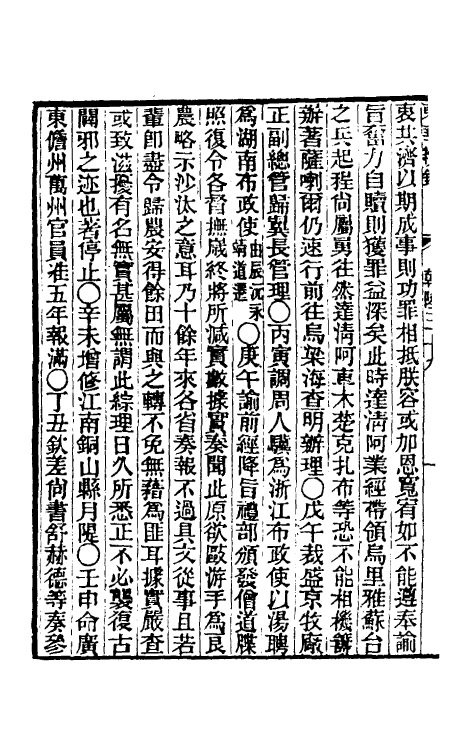 衷共濟以期成事則功罪相抵朕容或加恩寬宥如不能遵奉諭
旨奮力自贖則獲罪益深矣此時達淸阿業經帶領烏里雅蘇台
之兵起程尚屬勇往然達淸阿車木楚克扎布等恐不能相機籌
辦著薩喇爾仍速行前往烏梁海查明辦理〇戊午裁盛京牧廠
正副總管歸翼長管理〇丙寅調周人驥爲浙江布政使以湯聘
爲湖南布政使由辰沅永靖道遷〇庚午諭前經降旨禮部頒發僧道牒
照復令各督撫歲終將所減實數據實奏聞此原欲毆游手爲良
農略示沙汰之意耳乃十餘年來各省奏報不過具文從事且若
輩卽盡令歸農安得餘田而與之轉不免無藉爲匪耳據實嚴查
或致滋擾有名無實甚屬無謂此綜理日久所悉正不必襲復古
闢邪之迹也著停止〇辛未增修江南銅山縣月隄〇壬申命廣
東儋州萬州官員准五年報滿〇丁丑欽差尚書舒赫德等奏參